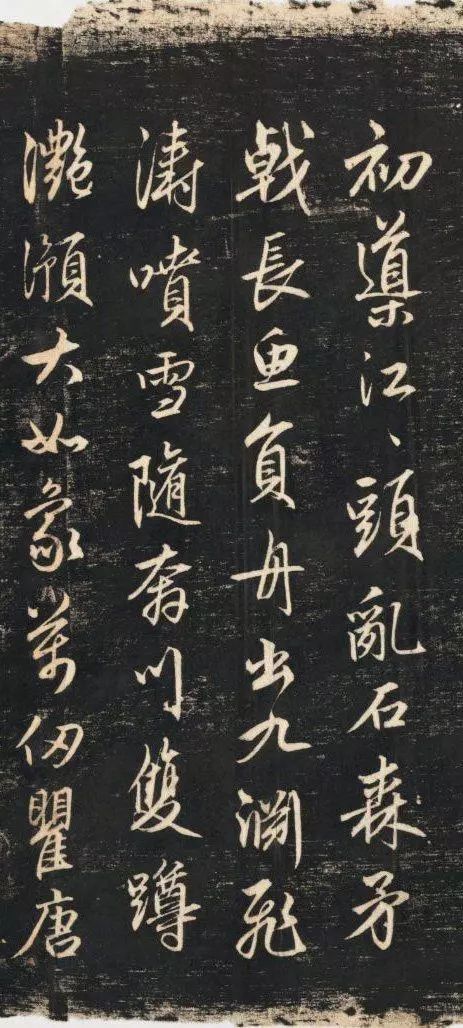 初導江、頭亂石森矛
戟長魚負舟出九淵飛
濤噴雪隨奔川雙蹲
灧澦大如象萬仞瞿唐